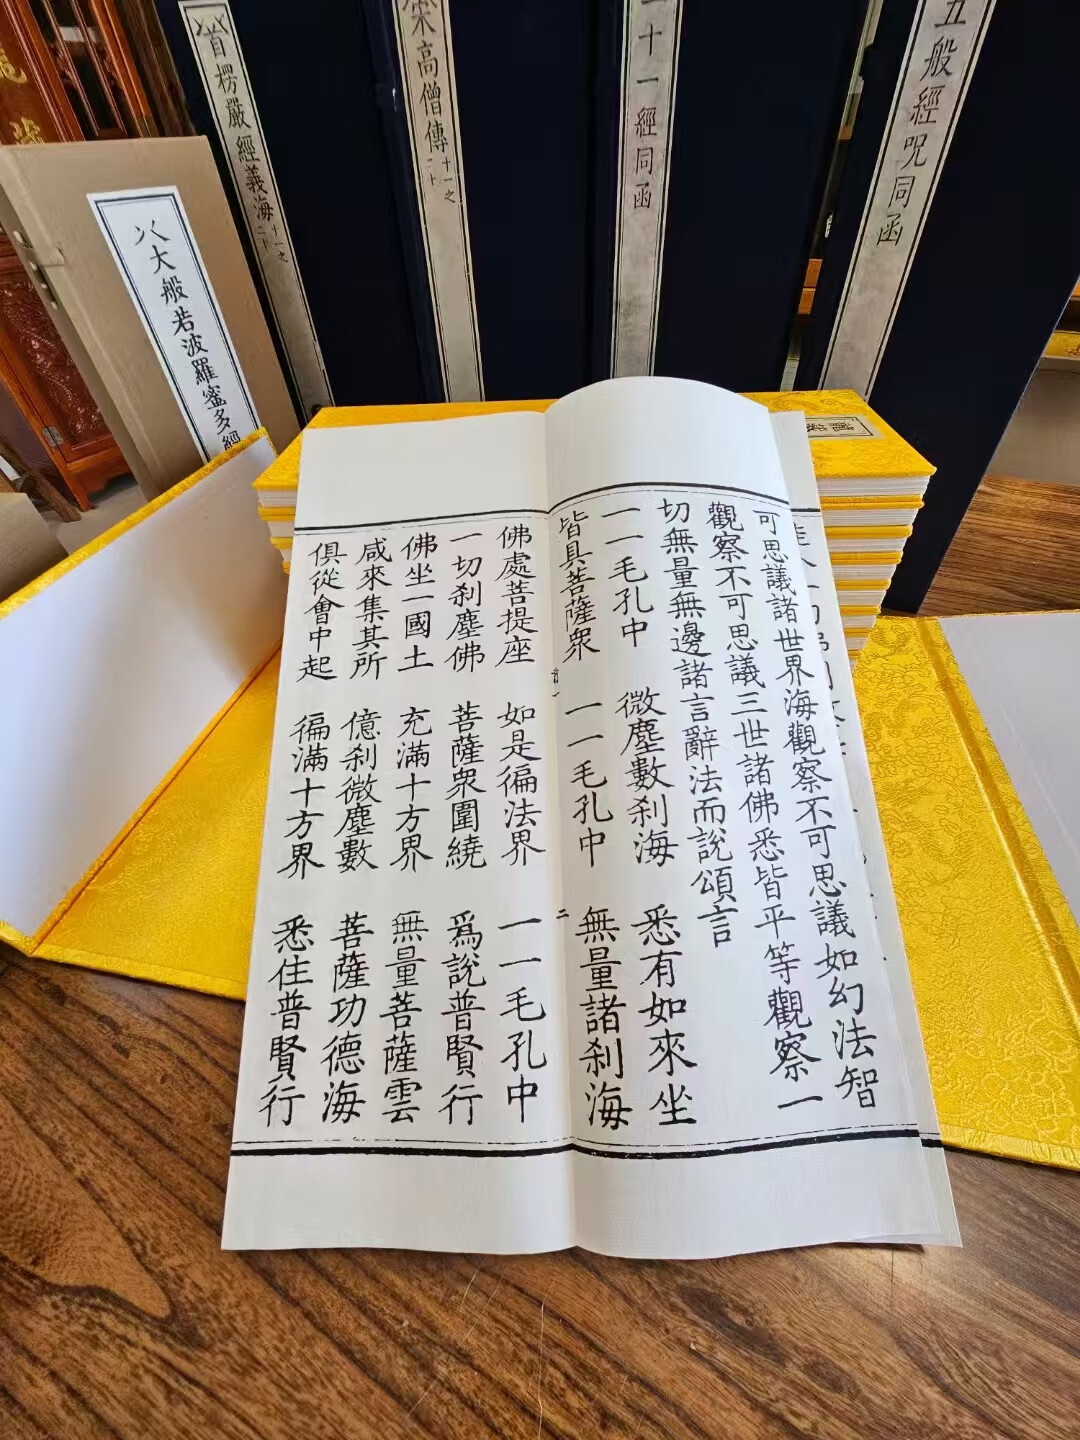 五般經呪同函
十一經同函
宋高僧傳十一之二十
首楞嚴經義海十一之二十
大般若波羅蜜多經
龍藏
可思議諸世界海觀察不可思議如幻法智
觀察不可思議三世諸佛悉皆平等觀察一
切無量無邊諸言辭法而說頌言
一一毛孔中 微塵數刹海 悉有如來坐
皆具菩薩眾 一一毛孔中 無量諸刹海
佛處菩提座 如是徧法界 一一毛孔中
一切刹塵佛 菩薩眾圍繞 爲說普賢行
佛坐一國土 充滿十方界 無量菩薩雲
咸來集其所 億刹微塵數 菩薩功德海
俱從會中起 徧滿十方界 悉住普賢行